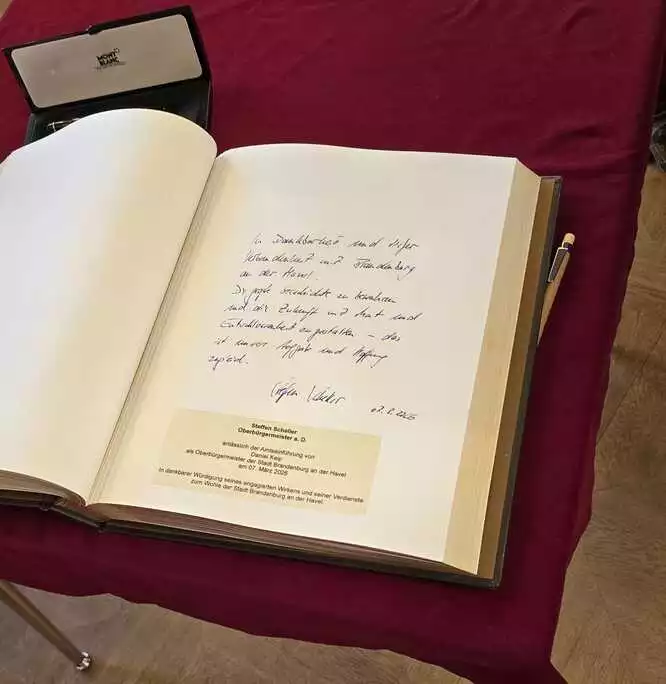 MONT
BLANC
In Dankbarkeit und tiefer
Verbundenheit mit Brandenburg
an der Havel.
Die große Geschichte zu bewahren
und die Zukunft mit Mut und
Entschlossenheit zu gestalten – das
ist unsere Aufgabe und Hoffnung
zugleich.
Steffen Scheller
Oberbürgermeister a. D.
anlässlich der Amtseinführung von
Daniel Keip
als Oberbürgermeister der Stadt Brandenburg an der Havel
am 07. März 2026
In dankbarer Würdigung seines engagierten Wirkens und seiner Verdienste
zum Wohle der Stadt Brandenburg an der Havel.